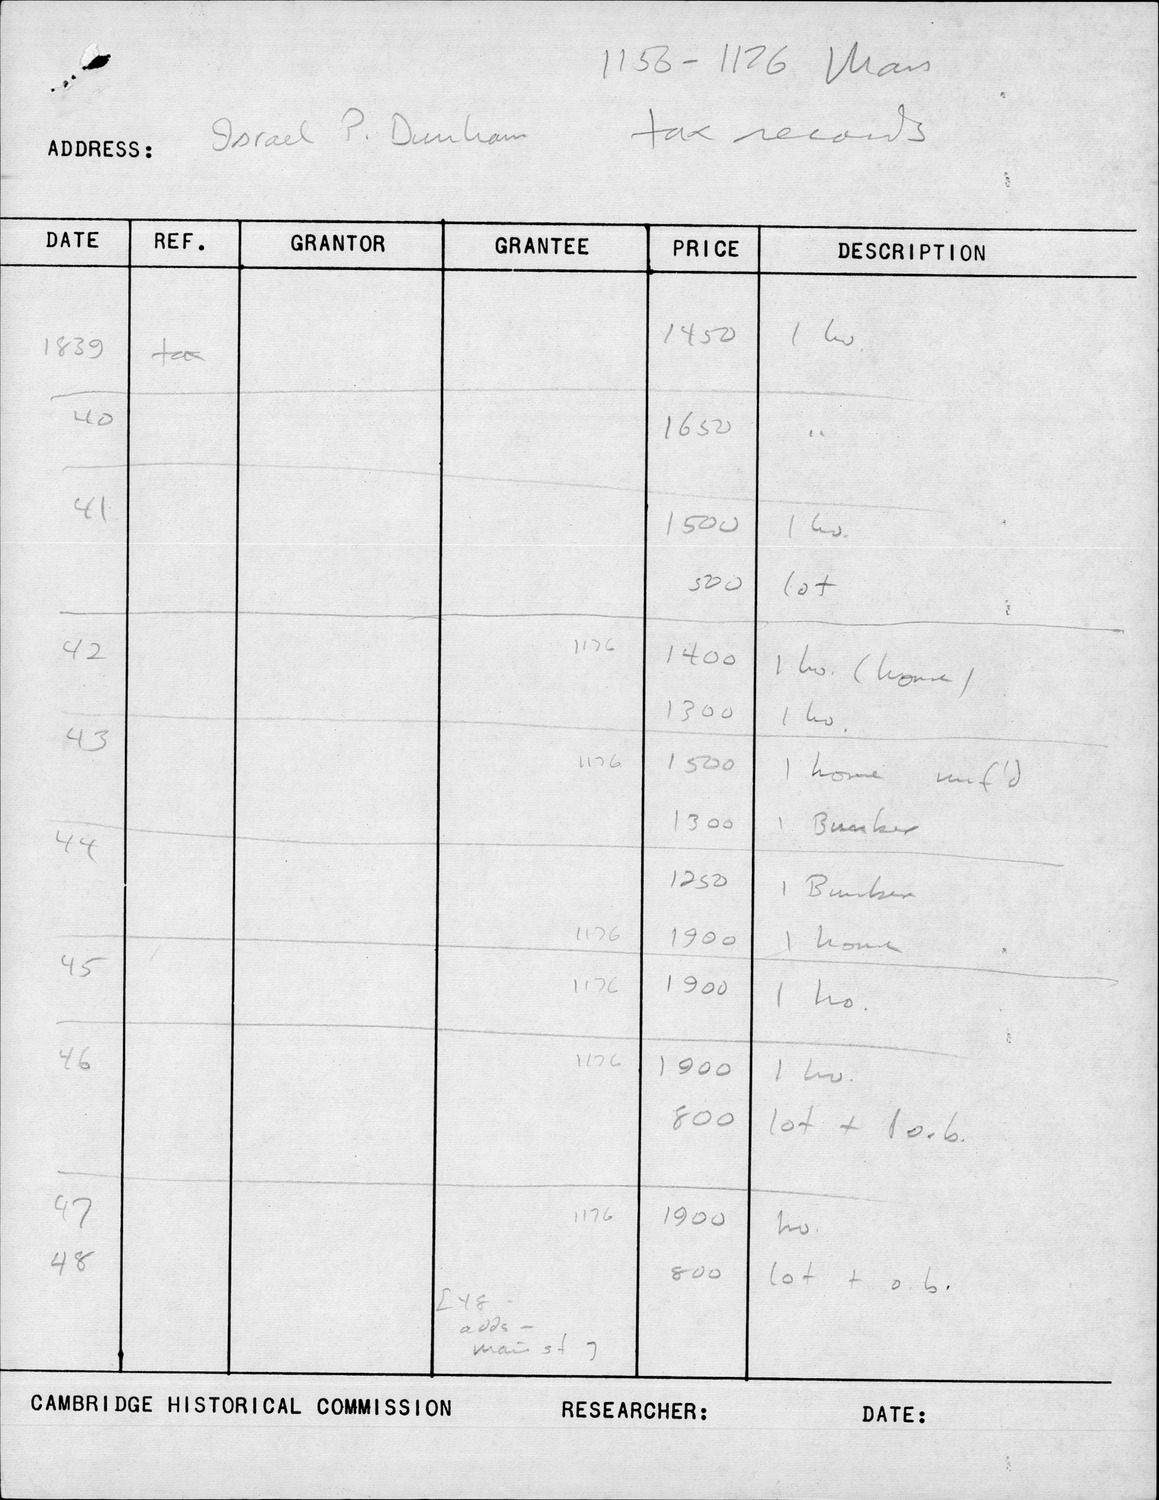 1156-1176 Mass
ADDRESS: Israel P. Dunham tax records
DATE REF. GRANTOR GRANTEE PRICE DESCRIPTION
1839 tax 1450 1 ho.
40 1650 "
41 1500 1 ho.
500 lot
42 1176 1400 1 ho. (home)
1300 1 ho.
43 1176 1500 1 home unf'd
1300 1 Bunker
44 1250 1 Bunker
1176 1900 1 home
45 1176 1900 1 ho.
46 1176 1900 1 ho.
800 lot + 1 o.b.
47 1176 1900 ho.
48 800 lot + o.b.
[48 -
adds -
main st ]
CAMBRIDGE HISTORICAL COMMISSION RESEARCHER: DATE: